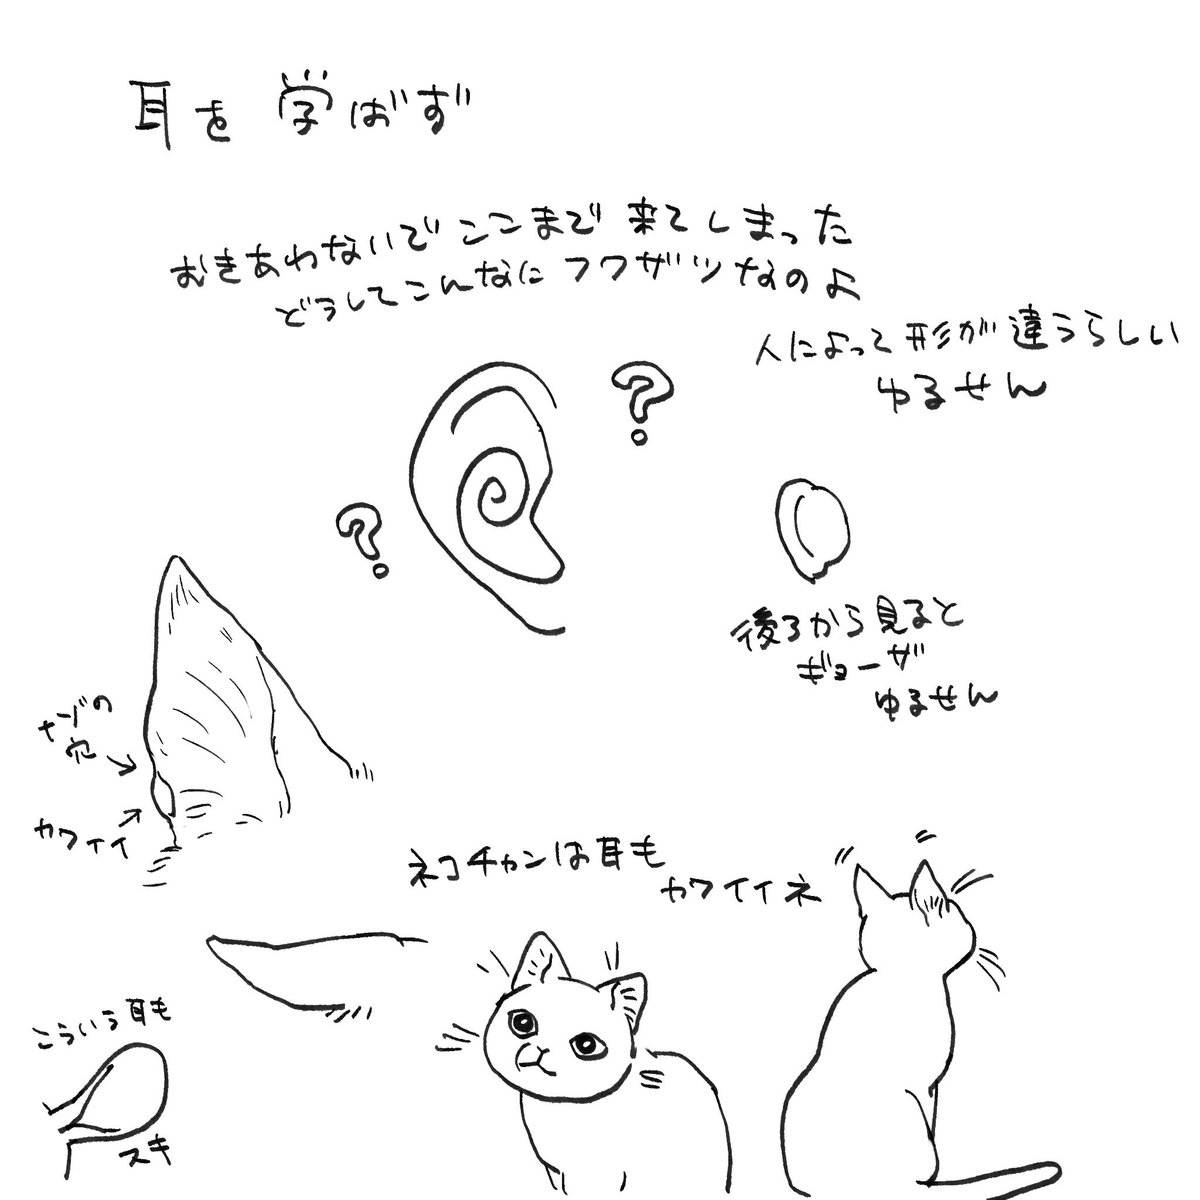 耳を学ばず
むきあわないでここまで来てしまった
どうしてこんなにフクザツなのよ
人によって形が違うらしい
ゆるせん
?
?
後ろから見ると
ギョーザ
ゆるせん
ナゾの
穴
カワイイ
ネコチャンは耳も
カワイイネ
こういう耳も
スキ